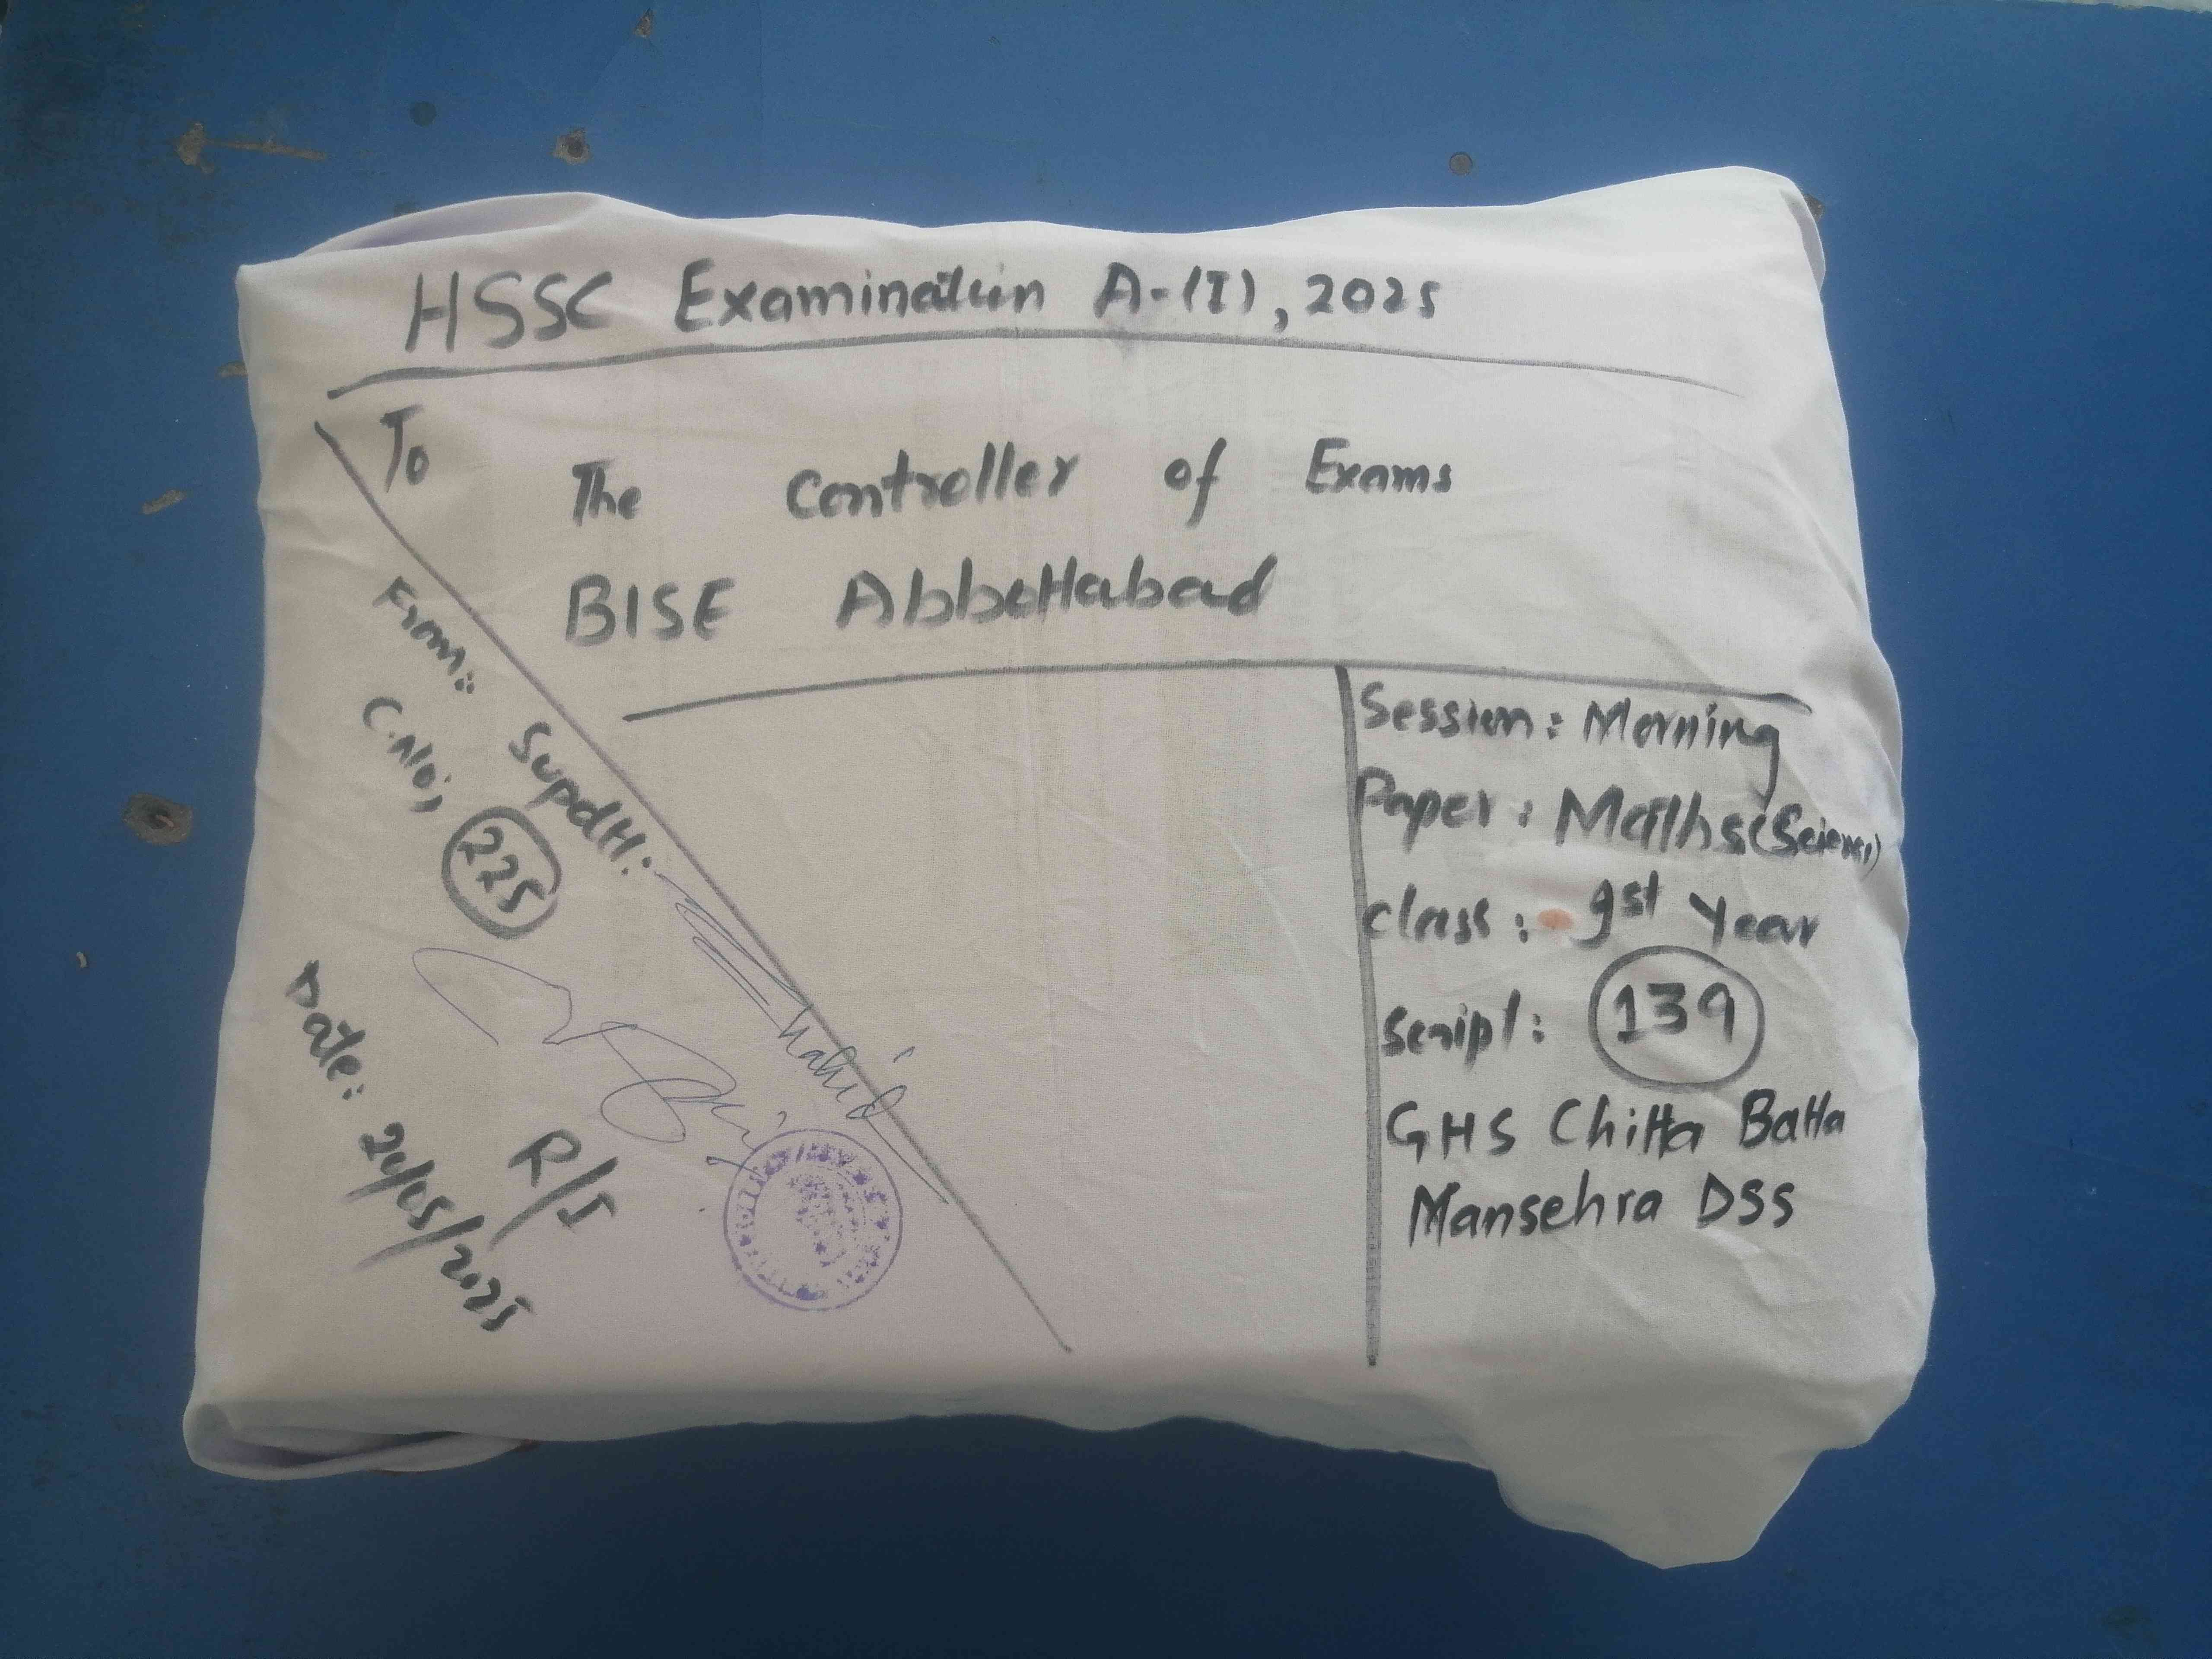 HSSC Examination A-(I), 2025
To
The Controller of Exams
BISE Abbottabad
From:
Supdtt.
C.No;
225
R/I
Session: Morning
Paper: Maths (Science)
class: 1st Year
Script: 139
GHS Chitta Batta
Mansehra DSS